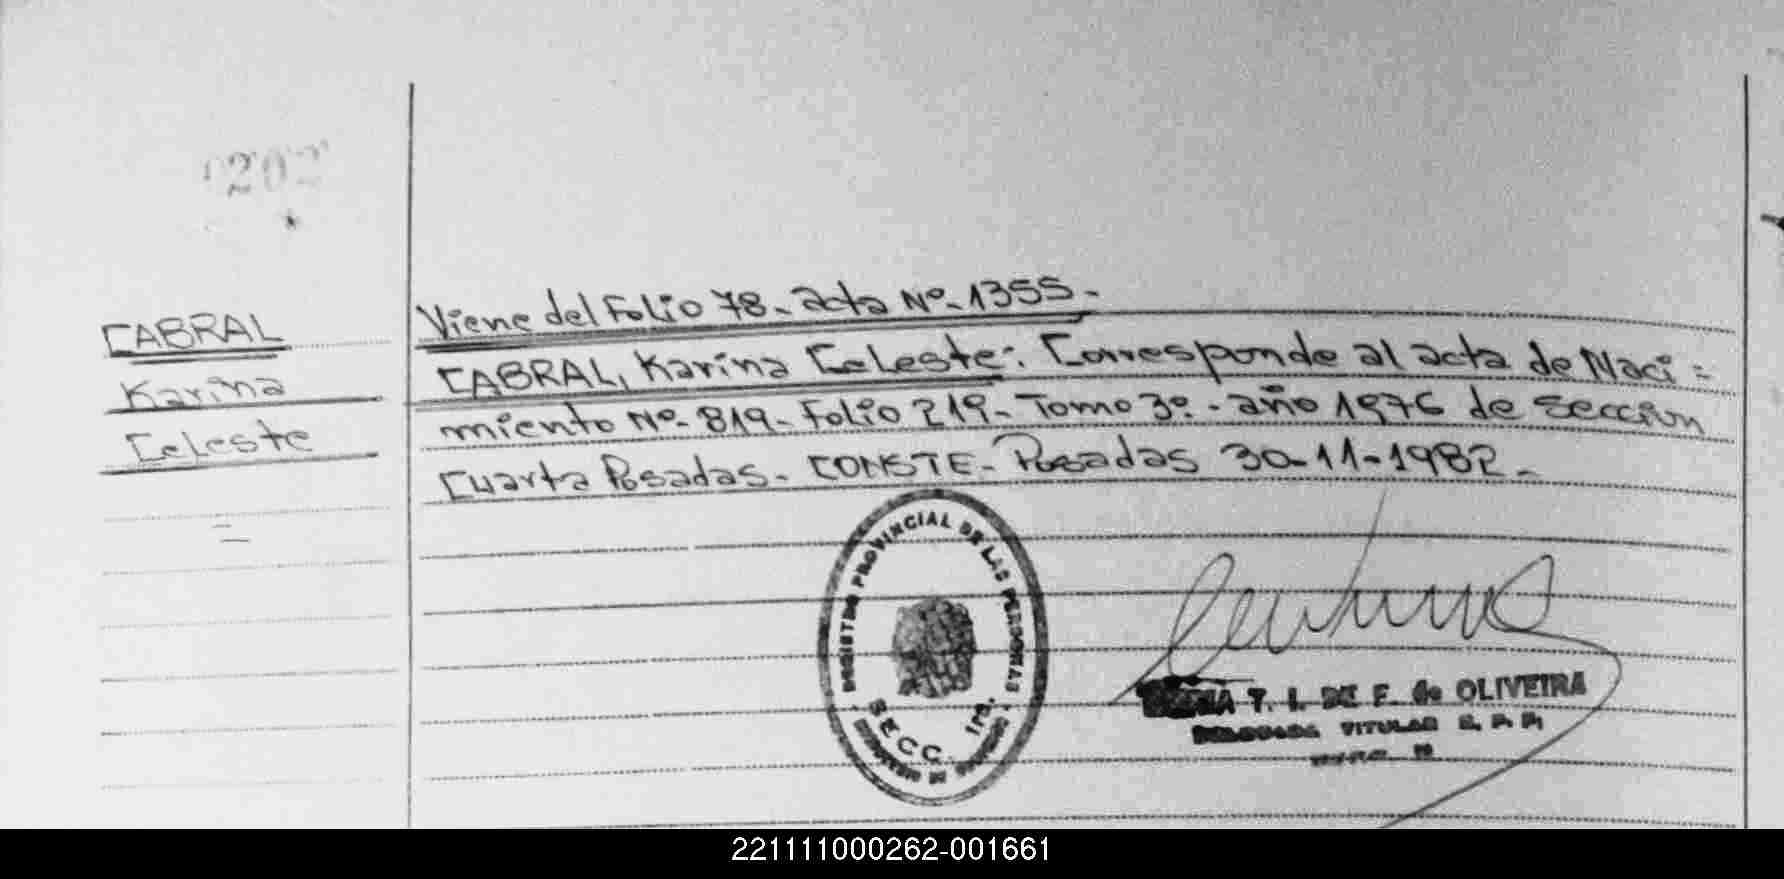 202
CABRAL
Karina
Celeste
Viene del Folio 78. acta Nº.1355.-
CABRAL, Karina Celeste: Corresponde al acta de Naci=
miento Nº. 819. Folio 219. Tomo 3º.- año 1976 de sección
Cuarta Posadas. CONSTE. Posadas 30-11-1982.-
REGISTRO PROVINCIAL DE LAS PERSONAS
SECC. 1ra.
T. I. DE F. de OLIVEIRA
DELEGADA TITULAR R. P. P.
221111000262-001661